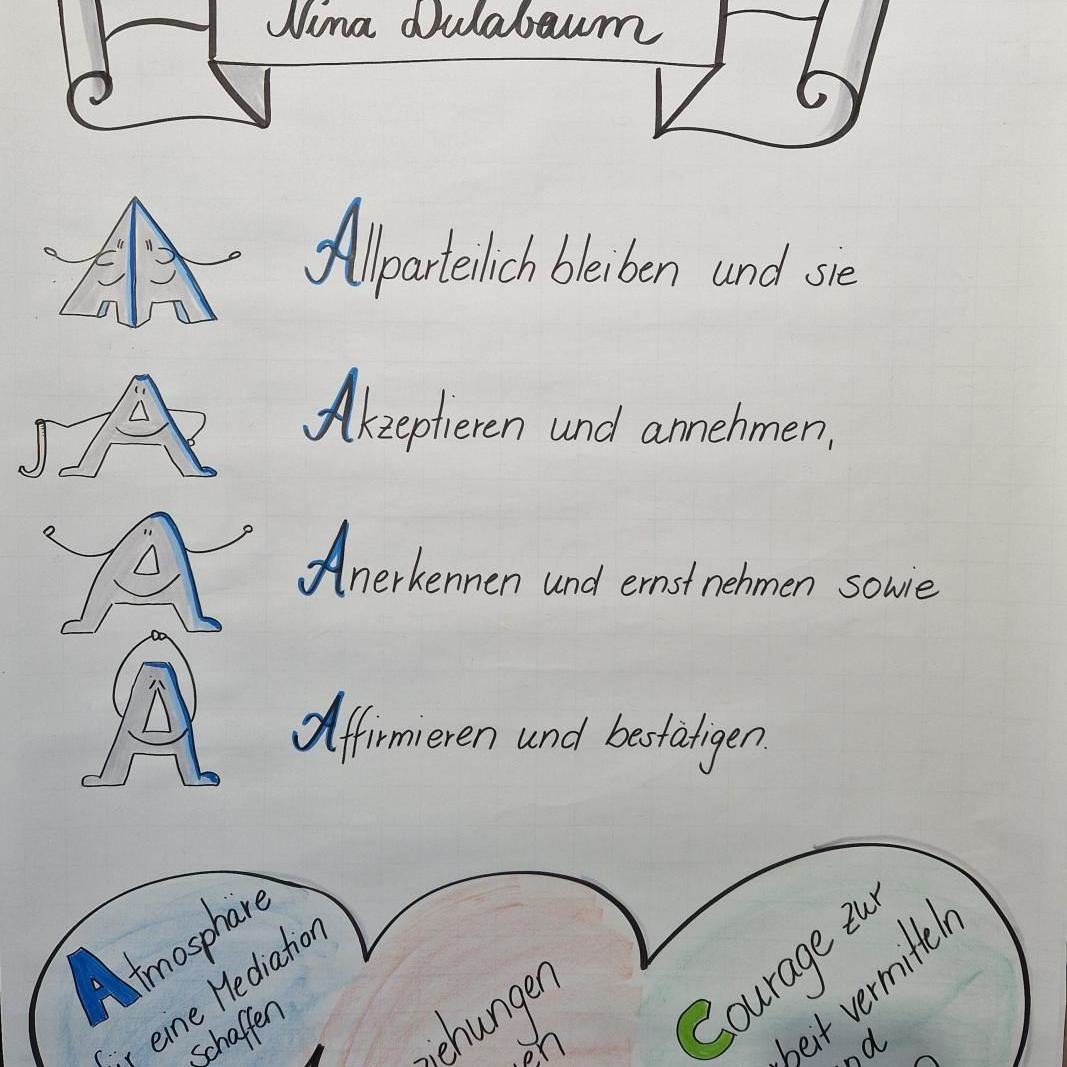 Nina Dulabaum
Allparteilich bleiben und sie
Akzeptieren und annehmen,
Anerkennen und ernst nehmen sowie
Affirmieren und bestätigen.
Atmosphäre
für eine Mediation
schaffen
ziehungen
en
Courage zur
beit vermitteln
nd